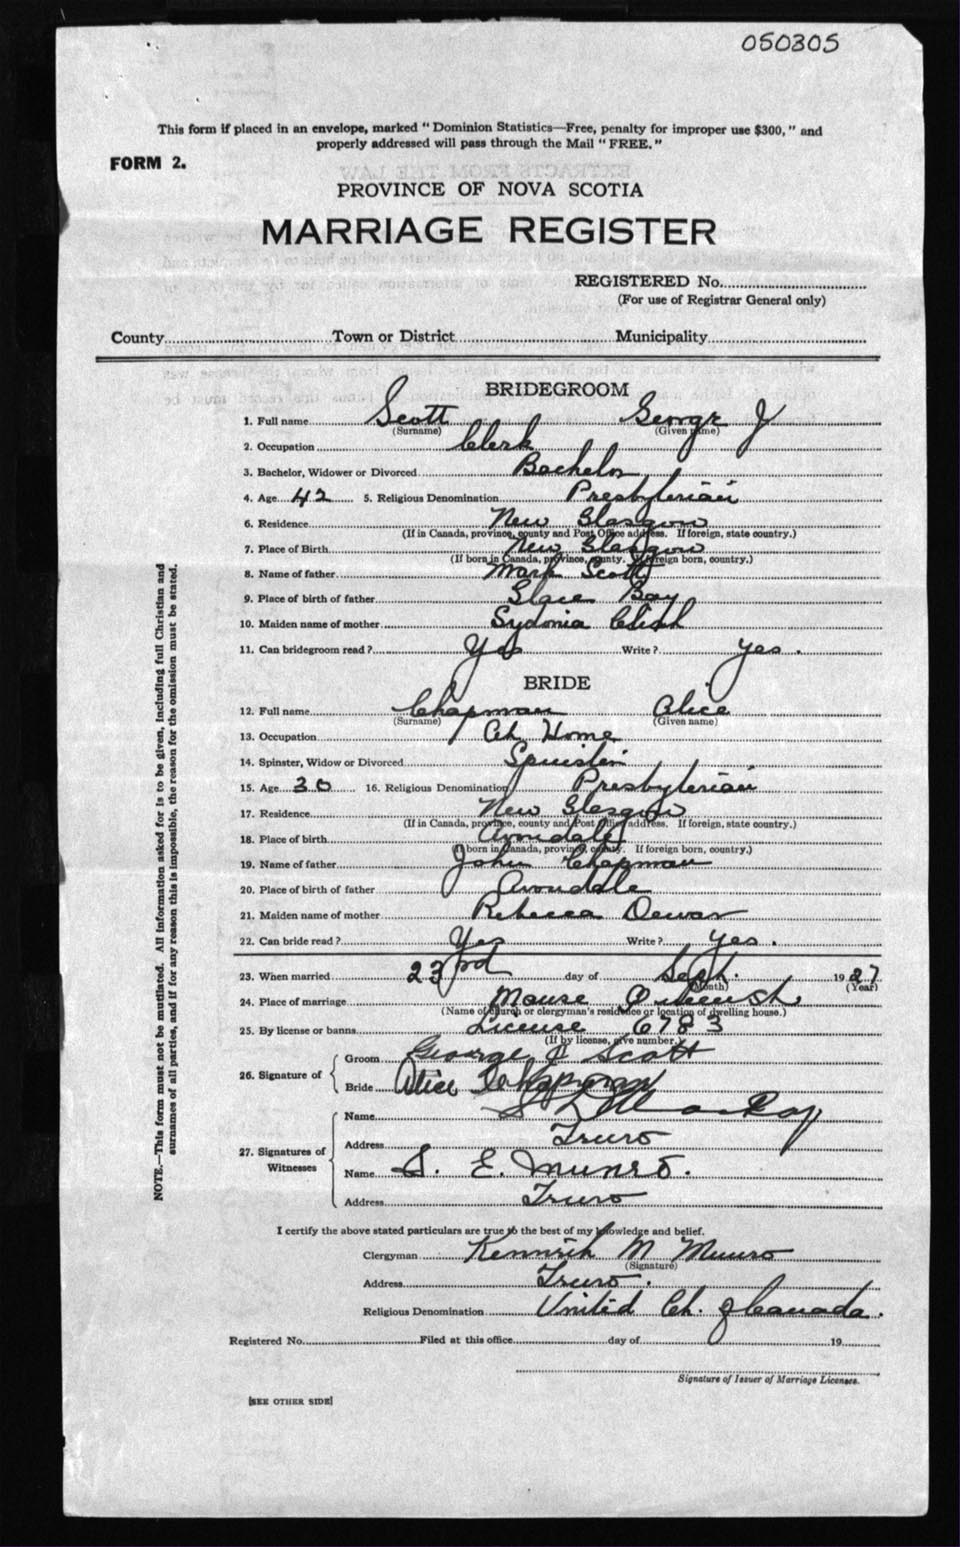 050305
This form if placed in an envelope, marked " Dominion Statistics—Free, penalty for improper use $300, " and
properly addressed will pass through the Mail " FREE. "
FORM 2.
PROVINCE OF NOVA SCOTIA
MARRIAGE REGISTER
REGISTERED No.
(For use of Registrar General only)
County Town or District Municipality
BRIDEGROOM
1. Full name Scott George J
(Surname) (Given name)
2. Occupation Clerk
3. Bachelor, Widower or Divorced Bachelor
4. Age 42 5. Religious Denomination Presbyterian
6. Residence New Glasgow
(If in Canada, province, county and Post Office address. If foreign, state country.)
7. Place of Birth New Glasgow
(If born in Canada, province, county. If foreign born, country.)
8. Name of father Mark Scott
9. Place of birth of father Glace Bay
10. Maiden name of mother Sydonia
11. Can bridegroom read ? Yes Write ? yes .
BRIDE
12. Full name Chapman Alice
(Surname) (Given name)
13. Occupation At Home
14. Spinster, Widow or Divorced Spinster
15. Age 30 16. Religious Denomination Presbyterian
17. Residence New Glasgow
(If in Canada, province, county and Post Office address. If foreign, state country.)
18. Place of birth Avondale
(If born in Canada, province, county. If foreign born, country.)
19. Name of father John Chapman
20. Place of birth of father Avondale
21. Maiden name of mother Rebecca Dewar
22. Can bride read ? Yes Write ? yes .
23. When married 23rd day of Sept. 1927
(Month) (Year)
24. Place of marriage Manse
(Name of church or clergyman's residence or location of dwelling house.)
25. By license or banns License 6783
(If by license, give number.)
26. Signature of
Groom George J Scott
Bride Alice Chapman
27. Signatures of Witnesses
Name MacKay
Address Truro
Name S. E. Munro.
Address Truro
I certify the above stated particulars are true to the best of my knowledge and belief.
Clergyman M Munro
(Signature)
Address Truro .
Religious Denomination United Ch. of Canada.
Registered No. Filed at this office day of 19
Signature of Issuer of Marriage Licenses.
[SEE OTHER SIDE]
NOTE.—This form must not be mutilated. All information asked for is to be given, including full Christian and
surnames of all parties, and if for any reason this is impossible, the reason for the omission must be stated.